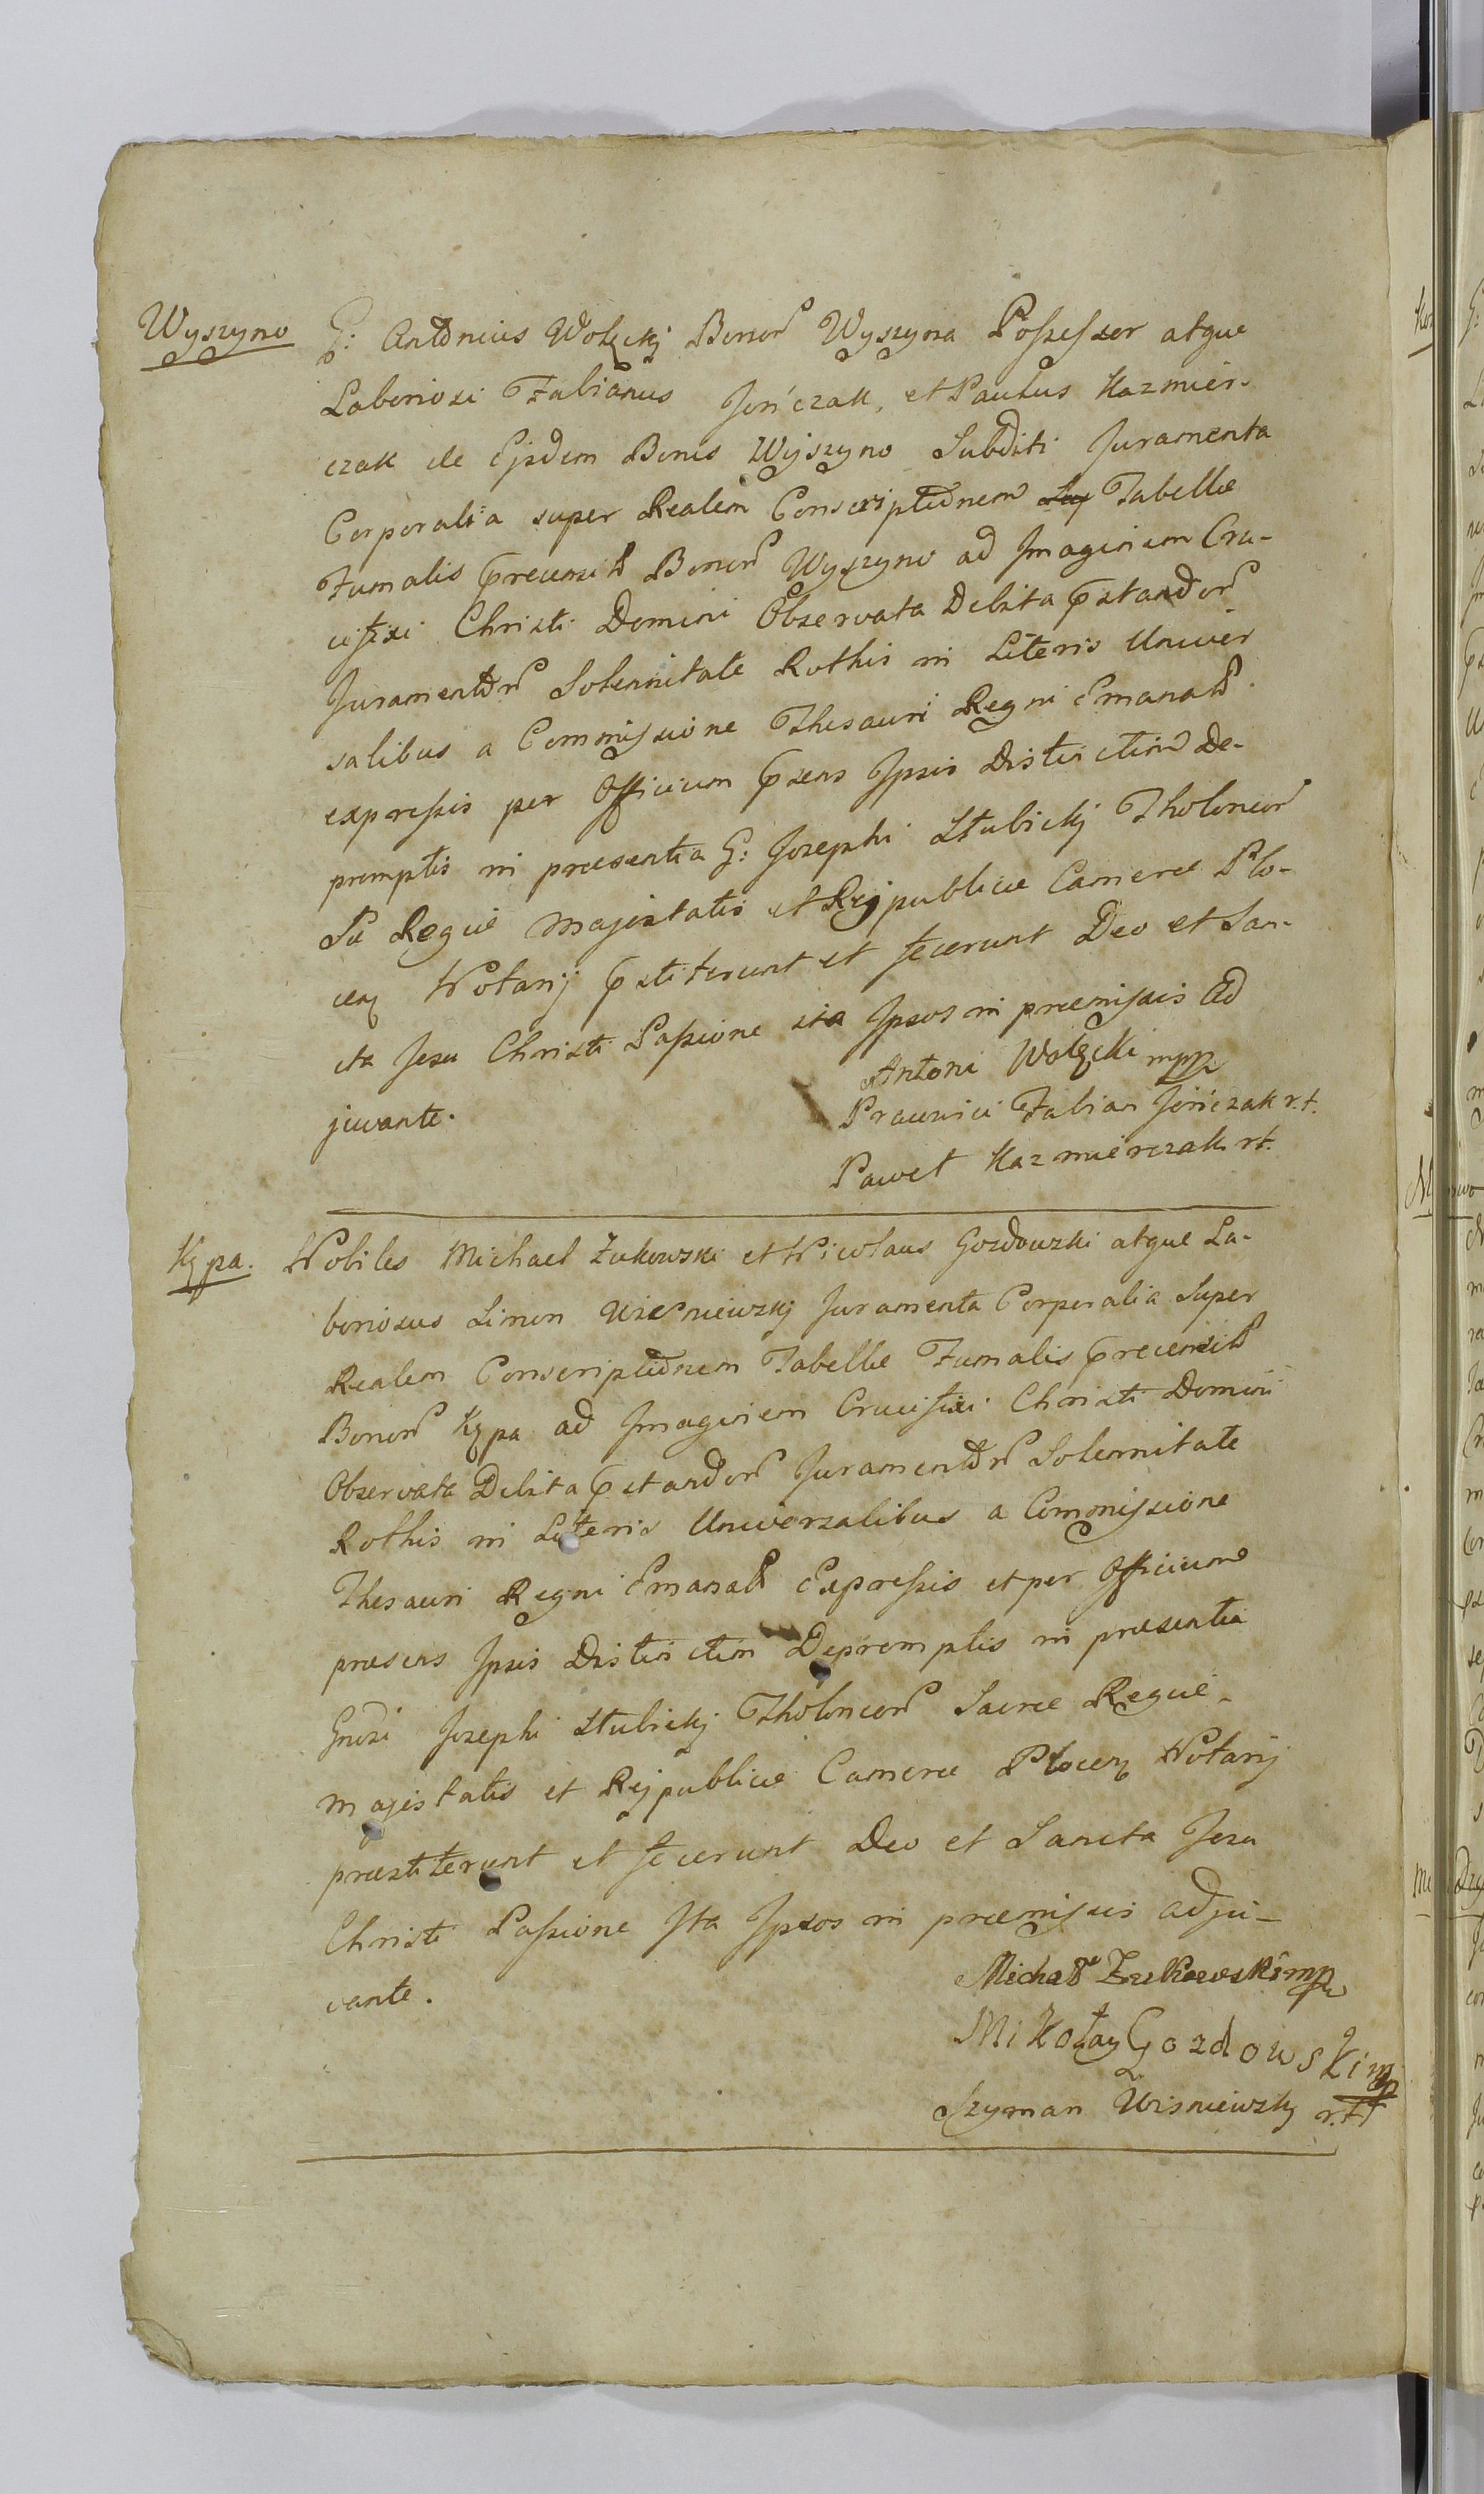 Wyszyno
G: Antonius Wołęckj Bonor Wyszyna Possessor atque
Laboriosi Fabianus Jończak, et Paulus Kazmier-
czak de Ejsdem Bonis Wyszyno Subditi Juramenta
Corporalia super Realem Conscriptionem Tabellæ
Fumalis precensit Bonor Wyszyno ad Imaginem Cru-
cifixi Christi Domini Observata Debita pstandor
Juramentor Solennitate Rothis in Literis Univer
salibus a Commissione Thesauri Regni Emanat
expressis per Officium psens Ipsis Distinctim De-
promptis in præsentia G: Josephi Słubickj Tholoneor
Sæ Regiæ Majestatis et Rejpublicæ Cameræ Plo-
cen Notarij pstiterunt et fecerunt Deo et San-
cta Jesu Christi Passione ita Ipsos in præmissis Ad
juvante.
Antoni Wołęcki mpp
Pracowici Fabian Jończak r.t.
Paweł Kazmierczak rt.
Kępa.
Nobiles Michael Zukowski et Nicolaus Gozdowski atque La-
boriosus Simon Wisniewskj Juramenta Corporalia Super
Realem Conscriptionem Tabellæ Fumalis precensit
Bonor Kępa ad Imaginem Crucifixi Christi Domini
Observata Debita pstandor Juramentor Solennitate
Rothis in Literis Universalibus a Commissione
Thesauri Regni Emanat Expressis et per Officium
præsens Ipsis Distinctim Depromptis in præsentia
Gnosi Josephi Słubickj Tholoneor Sacræ Regiæ
Majestatis et Rejpublicæ Cameræ Plocen Notarij
præstiterunt et fecerunt Deo et Sancta Jesu
Christi Passione Ita Ipsos in præmissis adju-
vante.
Michał Zukowski mp
Mikołay Gozdowski mp
Szyman Wisniewskj r.t